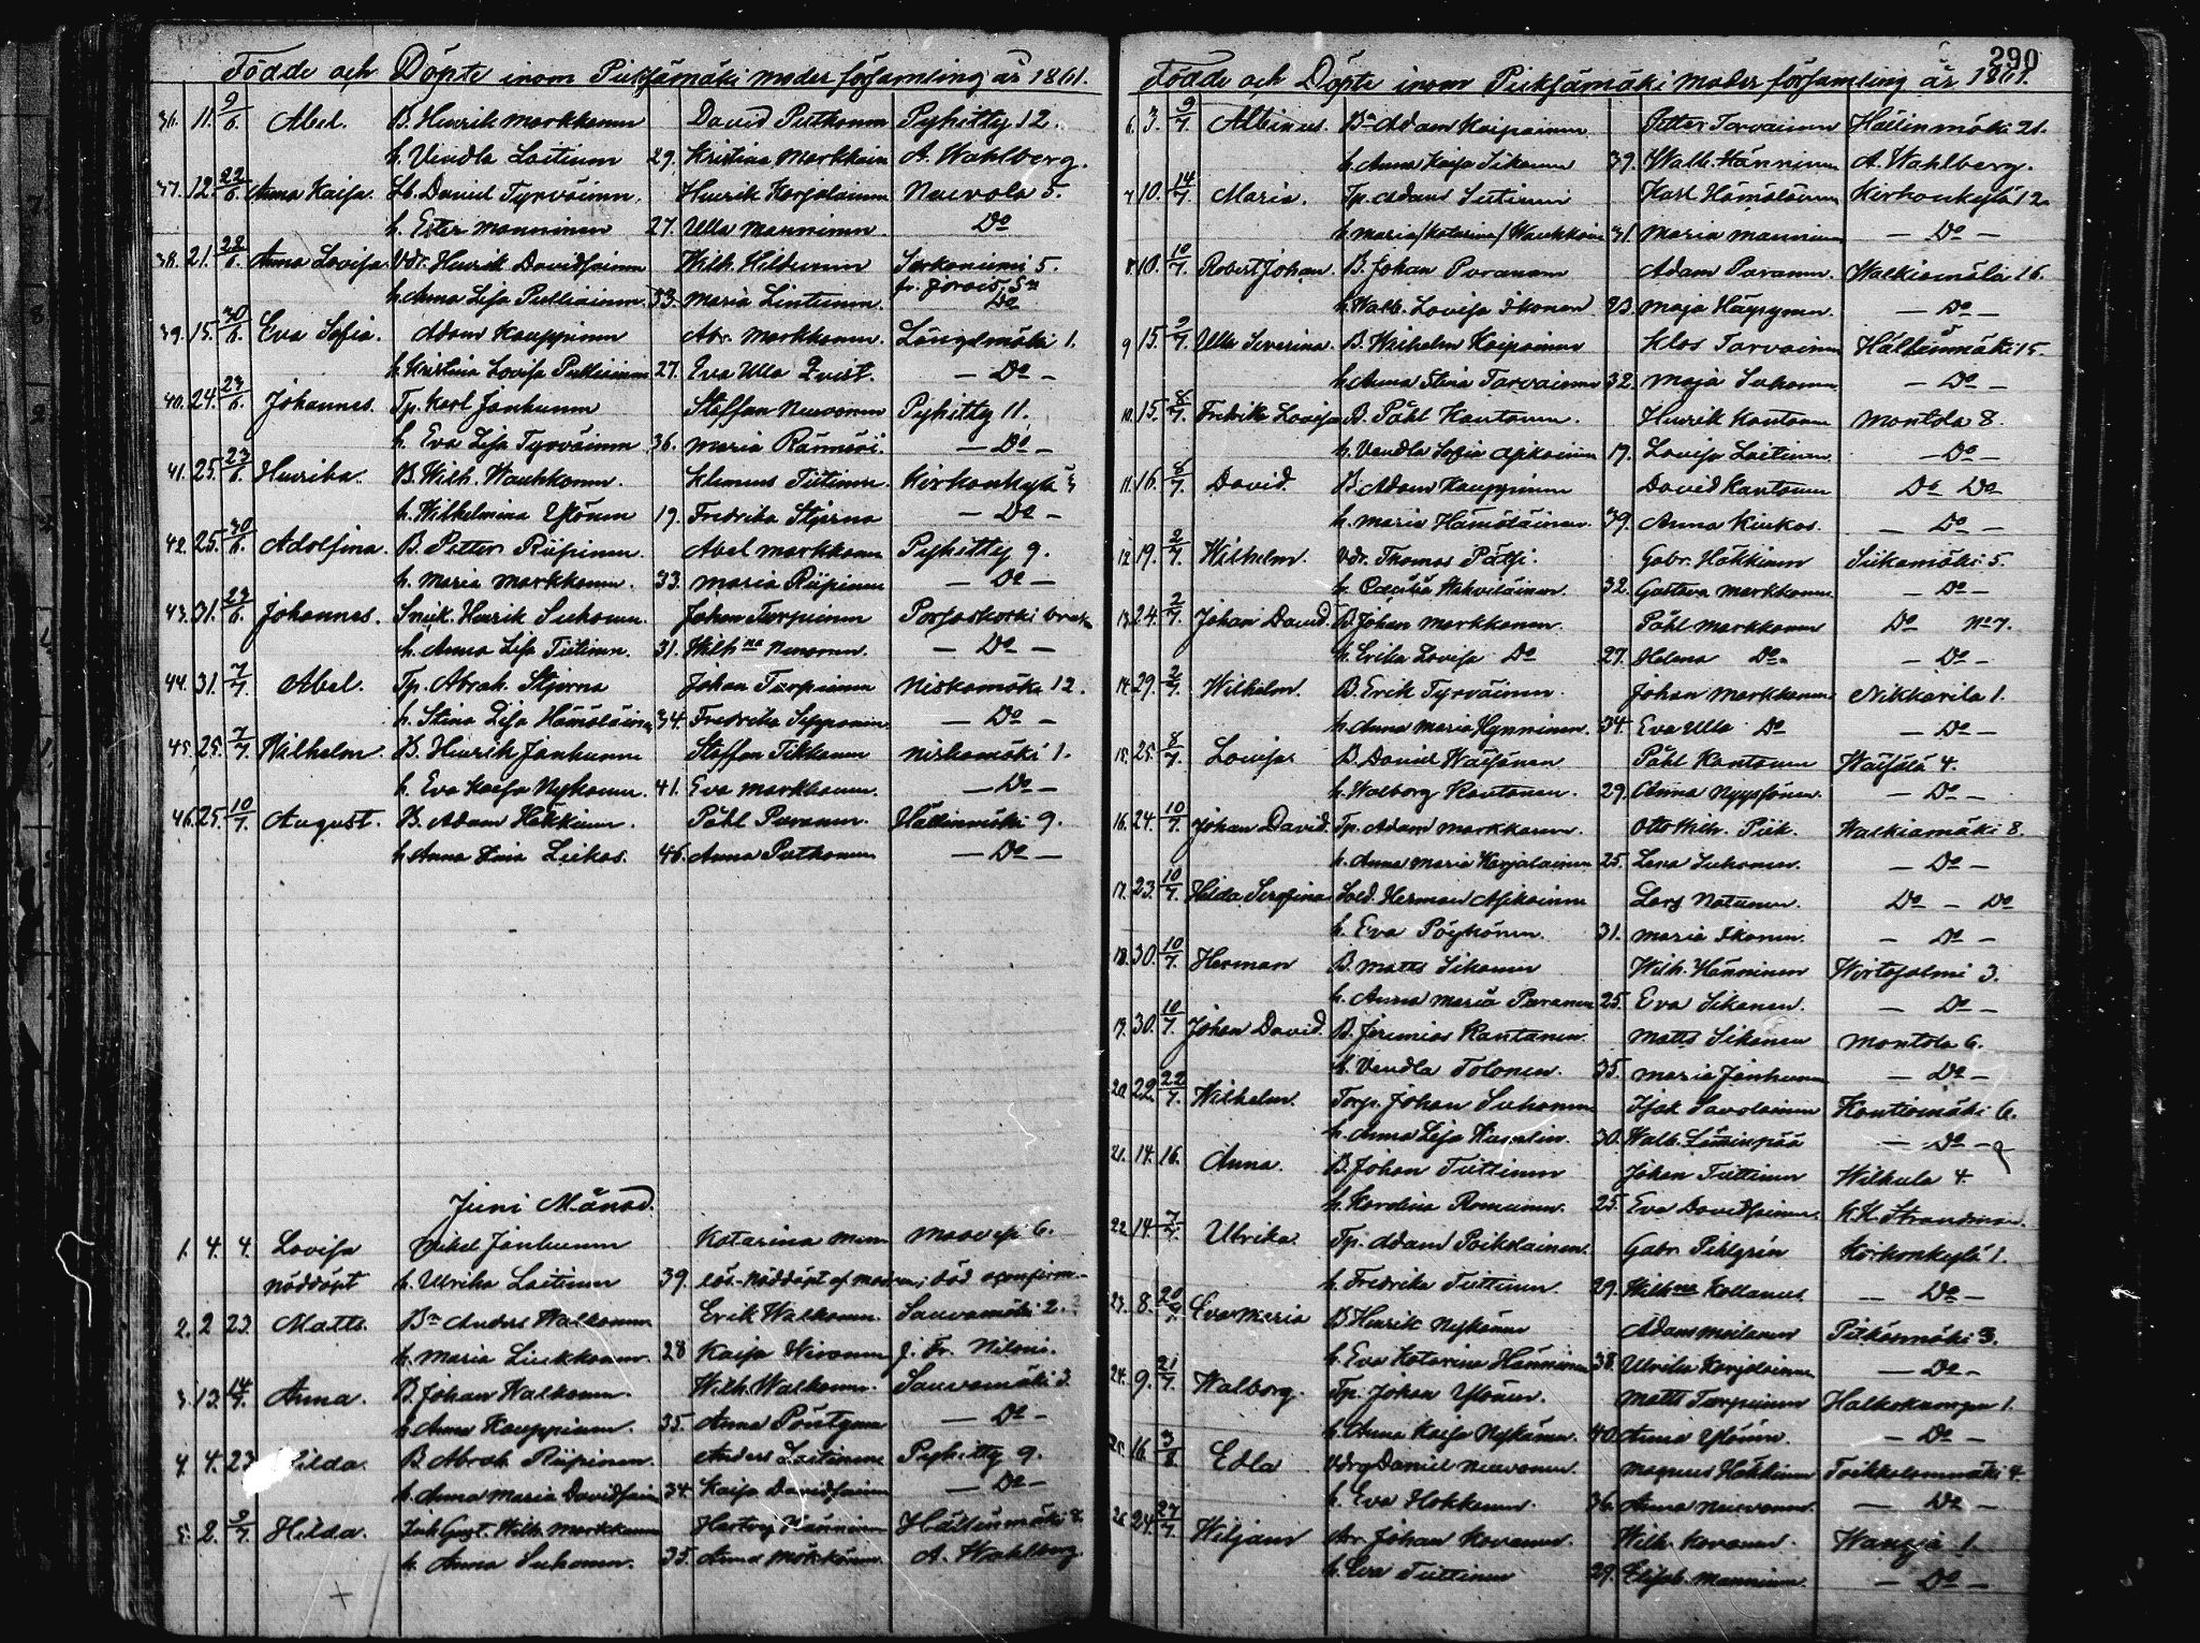 Födde och Döpte inom Pieksämäki moder församling år 1861.
36. 11. 9/6. Abel. B. Henrik Markkanen David Putkonen Pyhitty 12.
h. Vendla Laitinen 29. Kristina Markkain A. Wahlberg.
37. 12. 22/6. Anna Kaisa. Daniel Tyrväinen. Henrik Karjalainen Neuvola 5.
h. Ester Manninen 27. Ulla Manninen. Do
38. 21. 28/6. Anna Lovisa. Vdr. Henrik Davidsainen Wilh. Hildunen 5.
h. Anna Lisa Pulliainen. 33. Maria Lintunen. Do
39. 15. 30/6. Eva Sofia. Adam Kauppinen Abr. Markkanen. Längelmäki 1.
h. Kristina Lovisa Pulliainen 27. Eva Ulla Qvist. — Do —
40. 24. 23/6. Johannes. Tp. Karl Janhunen Staffan Neuvonen Pyhitty 11.
h. Eva Lisa Tyrväinen 36. Maria — Do —
41. 25. 23/6. Henrika. B. Wilh. Wauhkonen. Klemens Tiitinen. Kirkonkylä
h. Wilhelmina Ylönen 19. Fredrika Stjerna — Do —
42. 25. 30/6. Adolfina. B. Petter Riipinen. Abel Markkanen Pyhitty 9.
h. Maria Markkanen. 33. Maria Riipinen — Do —
43. 31. 23/6. Johannes. Henrik Suhonen. Johan Turpeinen Porsaskoski bruk
h. Anna Lisa Tiitinen. 31. Wilhna Neuvonen. — Do —
44. 31. 7/7. Abel. Tp. Abrah. Stjerna Johan Turpeinen Niskamäki 12.
h. Stina Lisa Hämäläinen 34. Fredrika Seppänen — Do —
45. 25. 7/7. Wilhelm. B. Henrik Janhunen Staffan Tikkanen Niskamäki 1.
h. Eva Kaisa Nykänen. 41. Eva Markkanen. — Do —
46. 25. 10/7. August. B. Adam Häkkinen. Påhl Paranen. Hällinmäki 9.
h. Anna Stina Liukas. 46. Anna Putkonen — Do —
Juni Månad.
1. 4. 4. Lovisa Mikel Janhunen Katarina 6.
nöddöpt h. Ulrika Laitinen 39. nöddöpt af
2. 2 23. Matts. Bn Anders Walkonen Erik Walkonen. Sauvamäki 2.
h. Maria Liukkonen. 28 Kaisa Hirvonen J. Fr. Niloni.
3. 13. 14/7. Anna. B. Johan Walkonen. Wilh. Walkonen. Sauvamäki 2.
h. Anna Kauppinen. 35. Anna Pöntynen — Do —
4. 4. 23 Hilda. B Abrah Riipinen. Anders Laitinen Pyhitty 9.
h. Anna Maria Davidsain 34. Kaisa Davidsainen — Do —
5. 2. 9/7. Hilda. Gust. Wilh. Markkanen Hartvig Hänninen Hällinmäki
h. Anna Suhonen. 35. Anna Mökkönen. A. Wahlberg
290
Födde och Döpte inom Pieksämäki moder församling år 1861.
6. 3. 9/7. Albinus. Bn Adam Kaipainen Petter Tarvainen Hällinmäki 21.
h. Anna Kaisa Sikanen 39. Walb. Hänninen A. Wahlberg.
7 10. 14/7. Maria. Tp. Adam Karl Hämäläinen Kirkonkylä 12
h. Maria /Katarina/ Wauhkoin 31. Maria Manninen — Do —
8. 10. 10/7. Robert Johan. B. Johan Paranen Adam Paranen. Walkiamäki 16.
h. Walb. Lovisa Ikonen 23. Maja Häyrynen. — Do —
9 15. 9/7. Ulla Severina. B. Wilhelm Kaipainen Klas Tarvainen Hällinmäki 15.
h. Anna Stina Tarvainen 32. Maja Suhonen — Do —
10. 15. 8/7. Fredrika Lovisa B. Påhl Kantanen. Henrik Kantanen Montola 8.
h. Vendla Sofia Asikainen 17. Lovisa Laitinen — Do —
11. 16. 8/7. David. B. Adam Kauppinen David Kantanen Do Do
h. Maria Hämäläinen. 39. Anna Kiukas. — Do —
12 19. 2/7. Wilhelm. Vdr. Thomas Gabr. Häkkinen Siikamäki 5.
h. 32. Gustava Markkanen — Do —
13. 24. 2/7. Johan David. B. Johan Markkanen. Påhl Markkanen Do No 7.
h. Erika Lovisa Do 27. Helena Do. — Do —
14. 29. 2/7. Wilhelm. B. Erik Tyrväinen. Johan Markkanen Nikkarila 1.
h. Anna Maria Hynninen. 34. Eva Ulla Do — Do —
15. 25. 8/7. Lovisa B. Daniel Wäisänen Påhl Kantanen Waisala 4.
h. Walborg Kantanen. 29. Anna Nyyssönen. — Do —
16. 24. 10/7. Johan David. Tp. Adam Markkanen. Otto Wilh. Piik. Walkiamäki 8.
h. Anna Maria Karjalainen 25. Lena Suhonen. — Do —
17. 23. 10/7. Hilda Serafina Sold. Herman Asikainen Lars Natunen. Do — Do
h. Eva Pöyhönen. 31. Maria Ikonen. — Do —
18. 30. 10/7. Herman B. Matts Sikanen Wilh. Hänninen Wirtasalmi 3.
h. Anna Maria Paranen 25. Eva Sikanen. — Do —
19. 30. 10/7. Johan David. B. Jeremias Kantanen. Matts Sikanen Montola 6.
h. Vendla Tolonen. 35. Maria Janhunen — Do —
20. 29. 22/7. Wilhelm. Torp. Johan Suhonen Isak Savolainen Kontiomäki 6.
h. Anna Lisa 30. Walb. Lämsinpää — Do —
21. 14. 16. Anna. B. Johan Tiittinen Johan Tiittinen Wilhula 4.
h. Karolina Romunen. 25. Eva Davidsainen. K. H. Strandman.
22. 14. 7/7. Ulrika. Tp. Adam Poikolainen. Gabr. Pihlgrén Kirkonkylä 1.
h. Fredrika Tiittinen. 29. Wilhna Kollanus. — Do —
23. 8. 20/7. Eva Maria B Henrik Nykänen Adam Moilanen Pitkämäki 3.
h. Eva Katarina Hänninen 38. Ulrika Karjalainen — Do —
24. 9. 21/7. Walborg. Tp. Johan Ylönen. Matts Turpeinen Halkokumpu 1.
h. Anna Kaisa Nykänen. 40. Anna Ylönen. — Do —
25. 16. 3/8 Edla Vdrg Daniel Neuvonen. Magnus Häkkinen Toikkalanmäki 4.
h. Eva Hokkanen. 36. Anna Neuvonen. — Do —
26. 24. 27/7. Wiljam Johan Kovanen. Wilh. Kovanen. Wangia 1.
h. Eva Tiittinen 29. Elisab. Manninen. — Do —